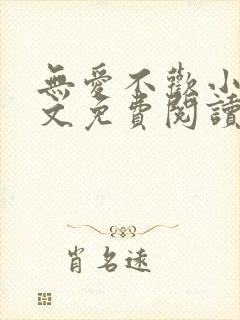 無愛不歡小
文免費閱讀
肖名遠